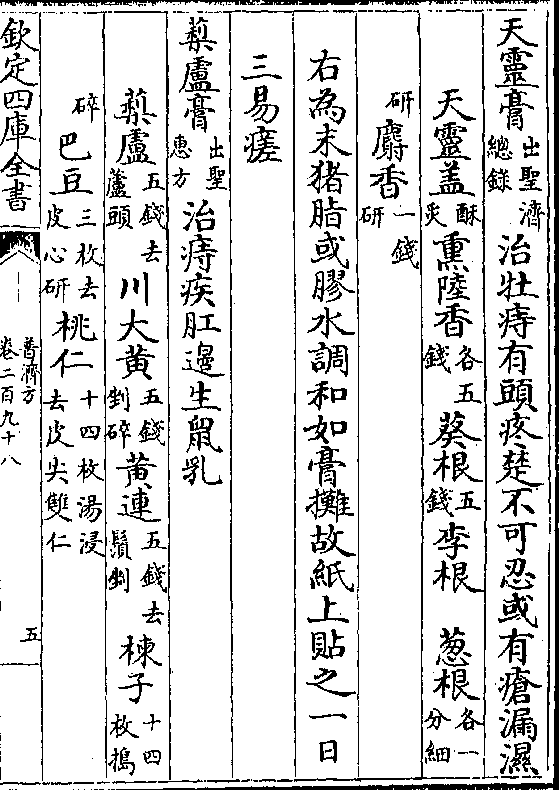 天靈膏出聖濟總錄治牡痔有頭疼楚不可忍或有瘡漏濕
天靈盖酥炙熏陸香各五錢葵根五錢李根 葱根各一分細
研麝香一錢研
右為末猪脂或膠水調和如膏攤故紙上貼之一日
三易瘥
藜盧膏出聖惠方治痔疾肛邊生䑕乳
藜盧五錢去蘆頭川大黄五錢剉碎黄連五錢去鬚剉楝子十四枚搗
碎巴豆三枚去皮心研桃仁十四枚湯浸去皮尖雙仁
欽定四庫全書
普濟方
卷二百九十八
五